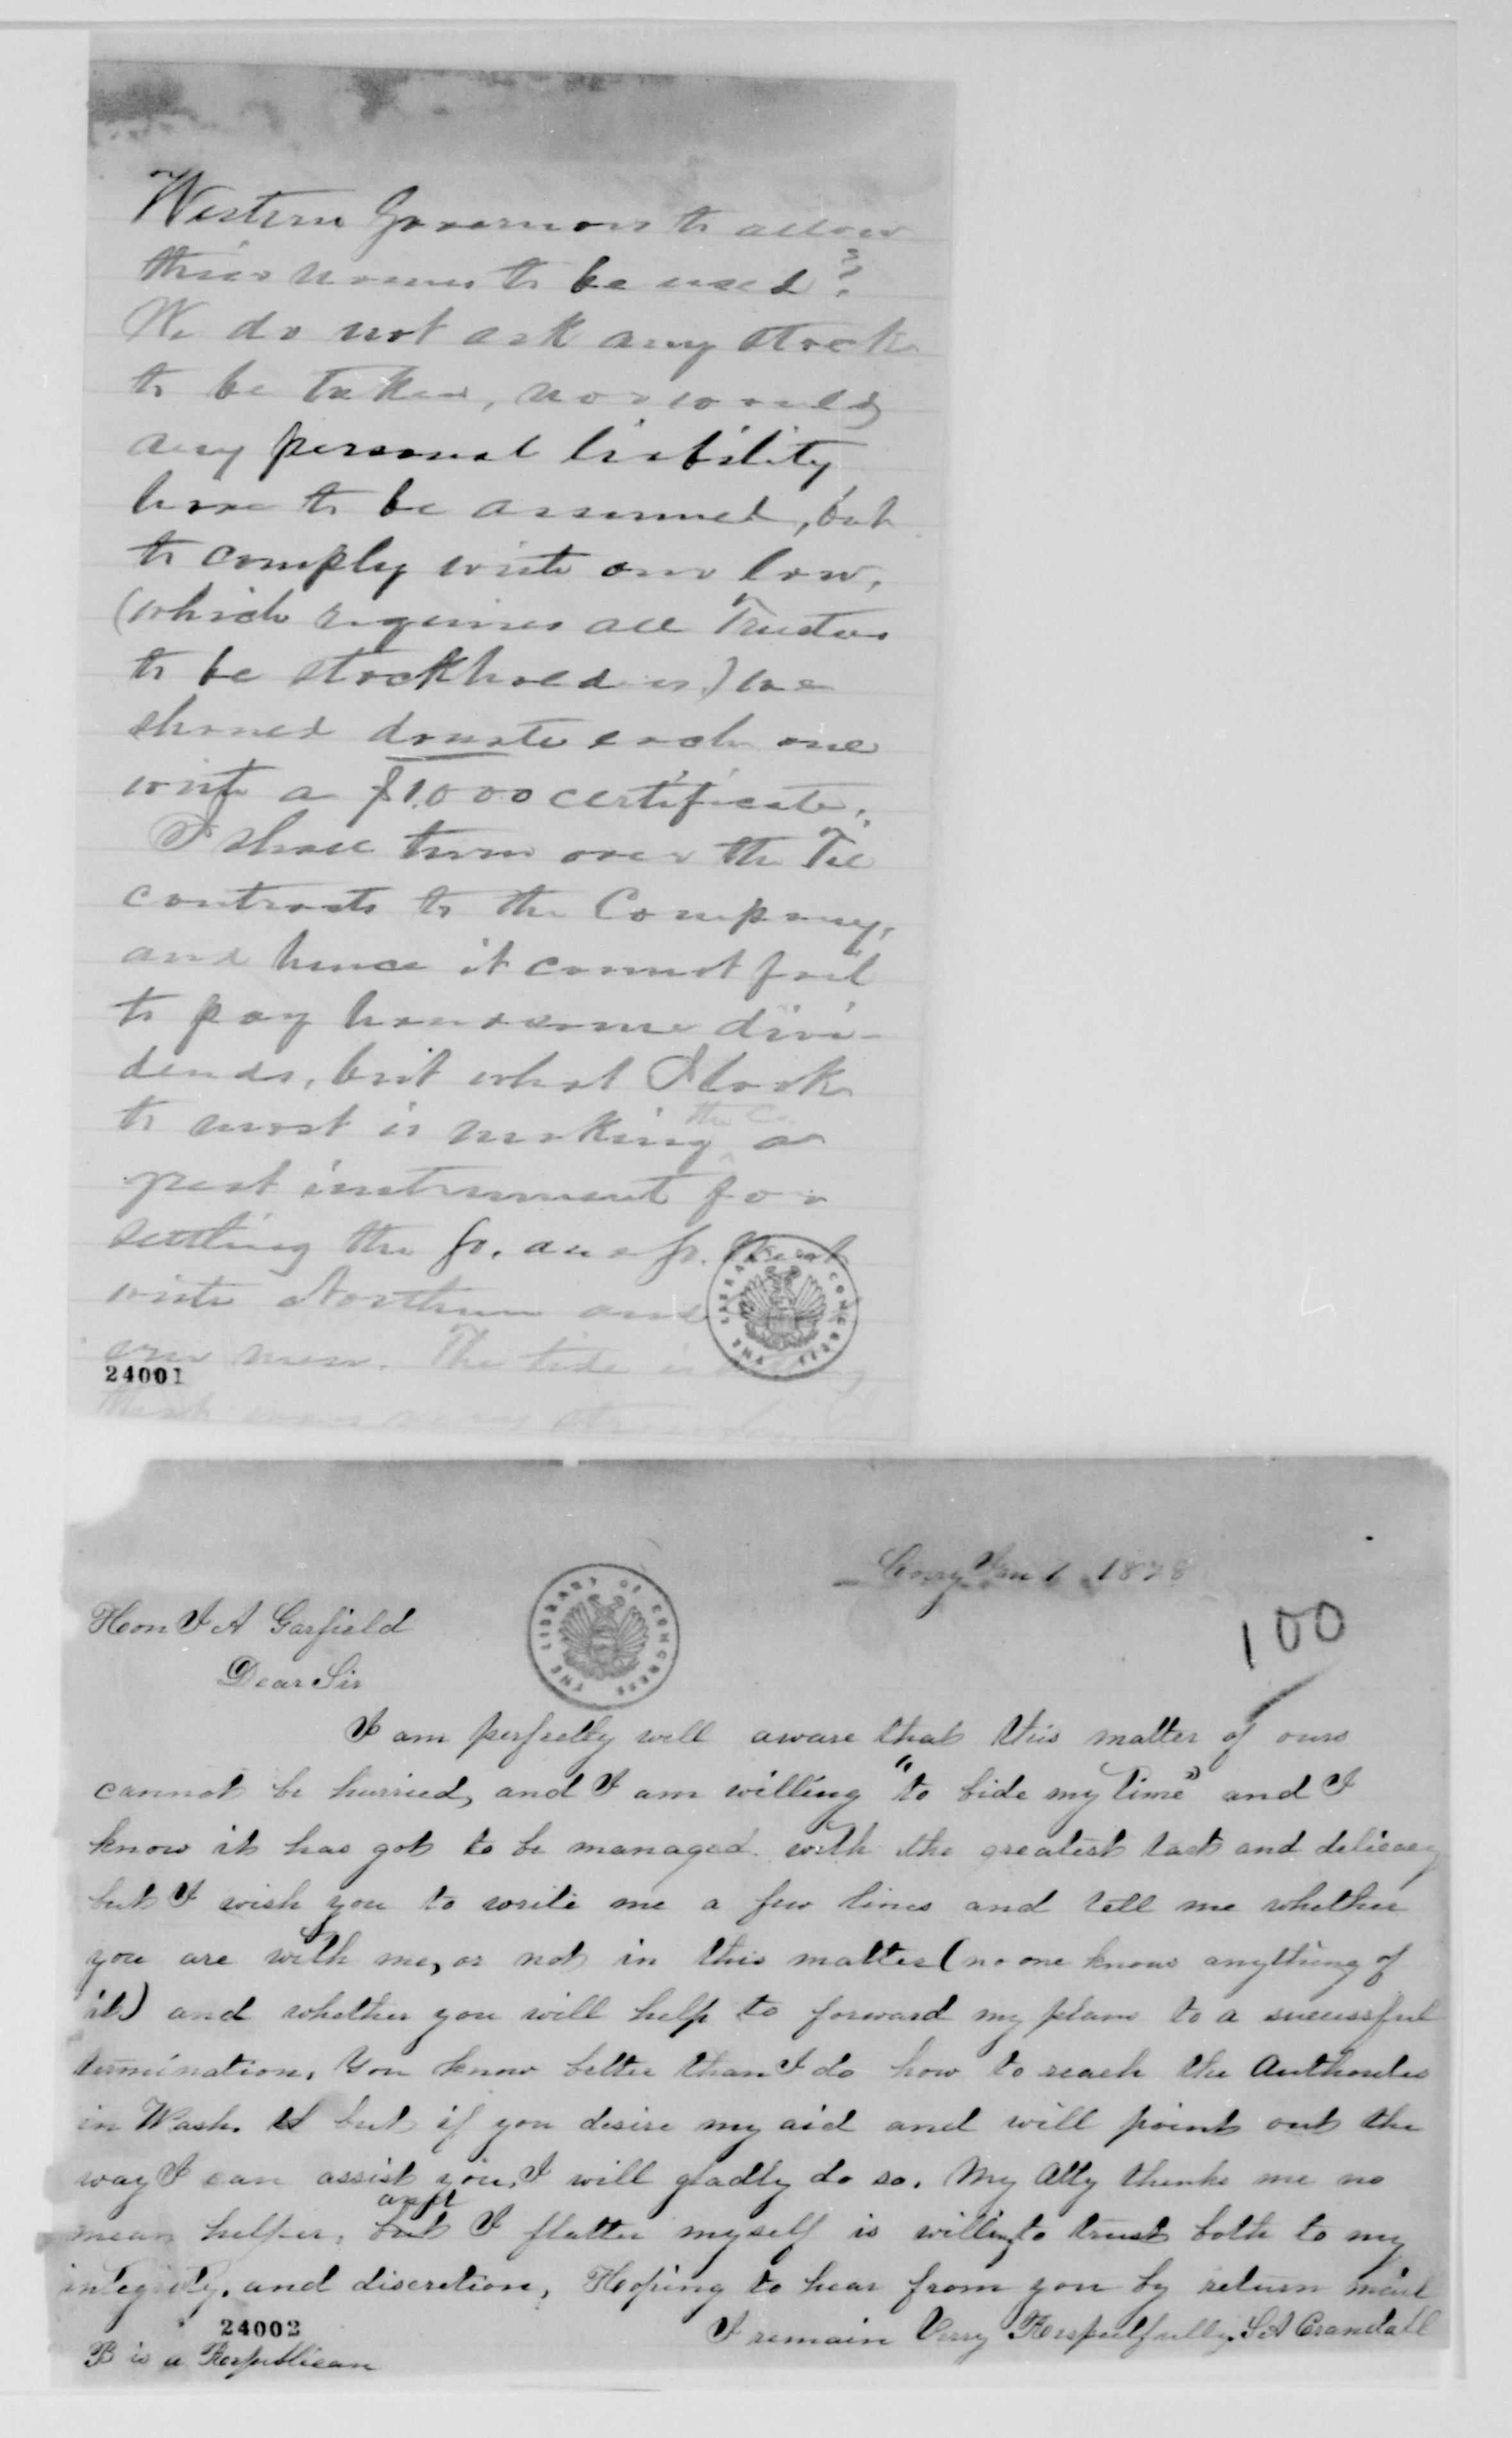 Western Governors to allow
their names to be used?
We do not ask any stock
to be taken, nor would
any personal liability
have to be assumed, but
to comply with our law,
(which requires all Trustees
to be stockholders) we
should donate each one
with a $1.000 certificate.
I shall turn over the Tie
contracts to the Company,
and hence it cannot fail
to pay handsome divi-
dends, but what I look
to most is making the Co. a
great instrument for
settling the
with Northern and
men. The tide is
THE LIBRARY OF CONGRESS
24001
Corry Jan 1 1878
100
Hon J A Garfield
Dear Sir
THE LIBRARY OF CONGRESS
I am perfectly well aware that this matter of ours
cannot be hurried, and I am willing "to bide my time" and I
know it has got to be managed with the greatest tact and delicacy
but I wish you to write me a few lines and tell me whether
you are with me, or not in this matter (no one knows anything of
it) and whether you will help to forward my plans to a successful
termination, You know better than I do how to reach the Authorities
in Wash. but if you desire my aid and will point out the
way I can assist you, I will gladly do so. My Atty thinks me no
mean helper, and I flatter myself is willing to trust both to my
integrity, and discretion, Hoping to hear from you by return mail
I remain Very Respectfully, S A Crandall
24002
B is a Republican